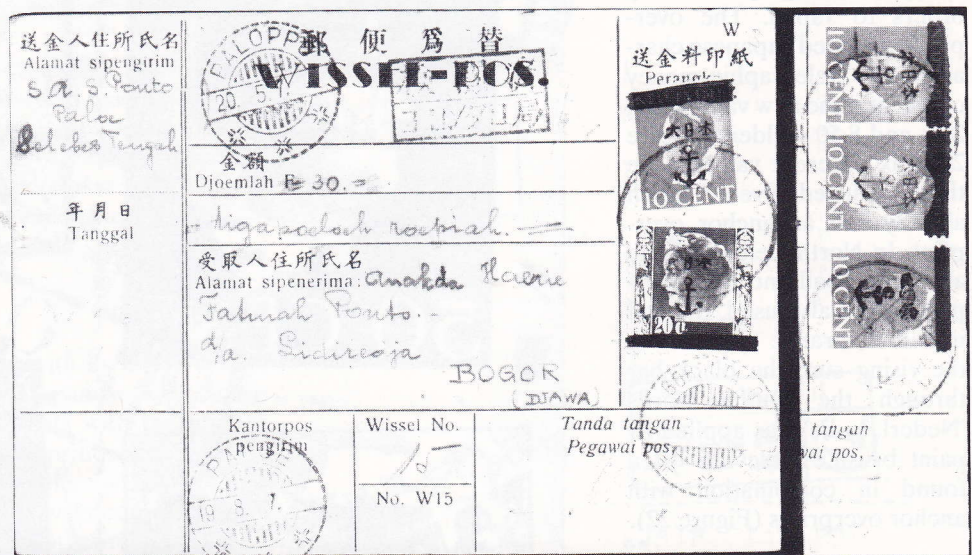 送金人住所氏名
Alamat sipengirim
S.A.S Ponto
Paloe
Selebes Tengah
年月日
Tanggal
郵便爲替
WISSEL-POS.
PALOPPO
20. 5.
金額
Djoemlah F 30.=
tiga poeloeh roepiah. =
受取人住所氏名
Alamat sipenerima: anakda Haerie
Fatmah Ponto.-
d/a.
BOGOR
(DJAWA)
W
送金料印紙
Perangko
大日本
10 CENT
大日本
20 Ct
10 CENT
10 CENT
10 CENT
Kantorpos
pengirim
19
Wissel No.
15
No. W15
Tanda tangan
Pegawai pos.
tangan
wai pos.